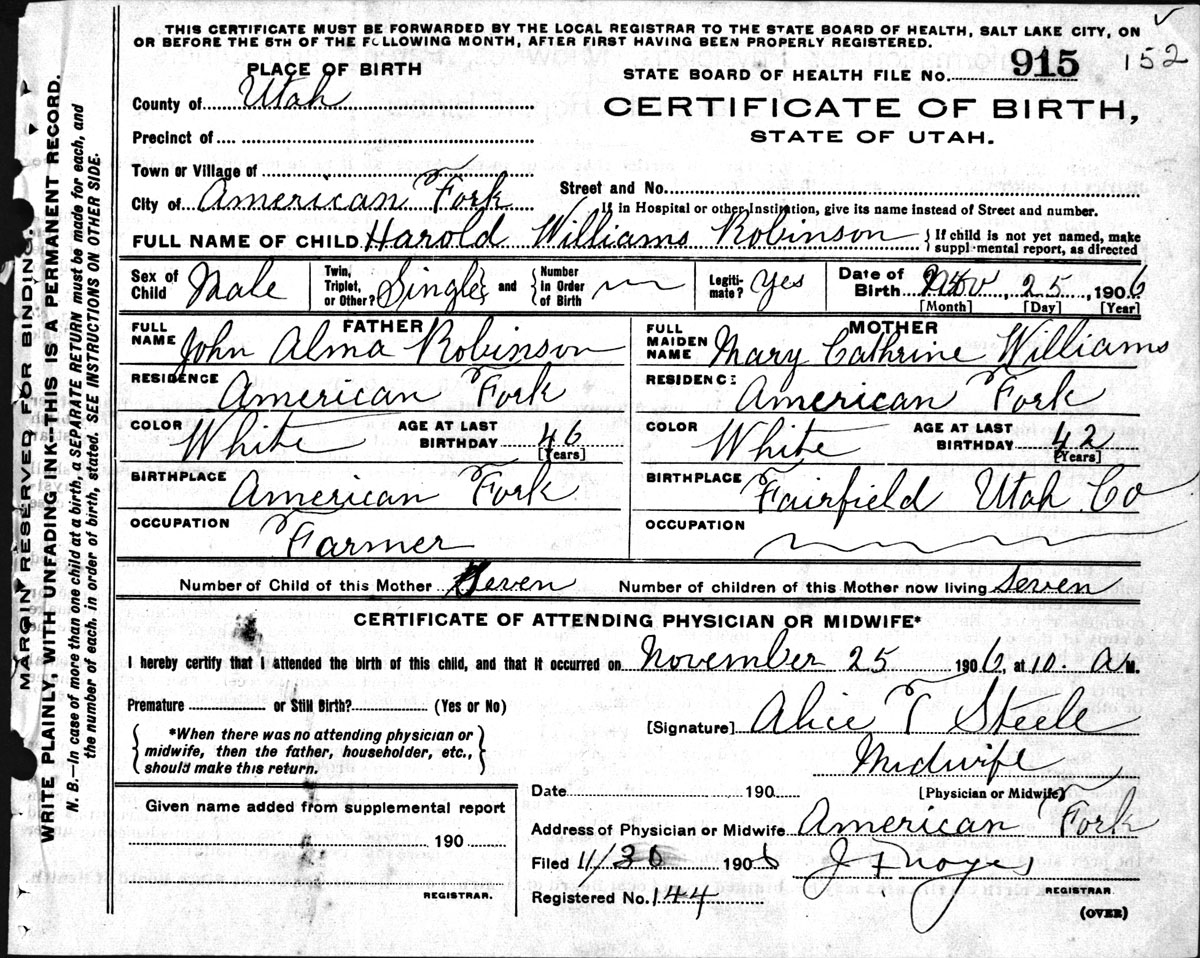 THIS CERTIFICATE MUST BE FORWARDED BY THE LOCAL REGISTRAR TO THE STATE BOARD OF HEALTH, SALT LAKE CITY, ON
OR BEFORE THE 5TH OF THE FOLLOWING MONTH, AFTER FIRST HAVING BEEN PROPERLY REGISTERED.
152
PLACE OF BIRTH
STATE BOARD OF HEALTH FILE NO. 915
County of Utah
CERTIFICATE OF BIRTH,
STATE OF UTAH.
Precinct of
Town or Village of
City of American Fork
Street and No.
If in Hospital or other Institution, give its name instead of Street and number.
FULL NAME OF CHILD Harold Williams Robinson { If child is not yet named, make
supplemental report, as directed
Sex of Child Male
Twin, Triplet, or Other? Single } and { Number in Order of Birth
Legiti-mate? Yes
Date of Birth Nov, 25, 1906
[Month] [Day] [Year]
FATHER
FULL NAME John Alma Robinson
MOTHER
FULL MAIDEN NAME Mary Cathrine Williams
RESIDENCE American Fork
RESIDENCE American Fork
COLOR White AGE AT LAST BIRTHDAY 46 [Years]
COLOR White AGE AT LAST BIRTHDAY 42 [Years]
BIRTHPLACE American Fork
BIRTHPLACE Fairfield Utah Co
OCCUPATION Farmer
OCCUPATION
Number of Child of this Mother Seven Number of children of this Mother now living Seven
CERTIFICATE OF ATTENDING PHYSICIAN OR MIDWIFE*
I hereby certify that I attended the birth of this child, and that it occurred on November 25 1906, at 10. A M.
Premature or Still Birth? (Yes or No)
[Signature] Alice T Steele
{ *When there was no attending physician or
midwife, then the father, householder, etc.,
should make this return. }
Midwife
Date 190 [Physician or Midwife]
Given name added from supplemental report
190
REGISTRAR.
Address of Physician or Midwife American Fork
Filed 11/30 1906 J F Noyes
REGISTRAR.
Registered No. 144
(OVER)
MARGIN RESERVED FOR BINDING.
WRITE PLAINLY, WITH UNFADING INK—THIS IS A PERMANENT RECORD.
N. B.—In case of more than one child at a birth, a SEPARATE RETURN must be made for each, and
the number of each. in order of birth, stated. SEE INSTRUCTIONS ON OTHER SIDE.